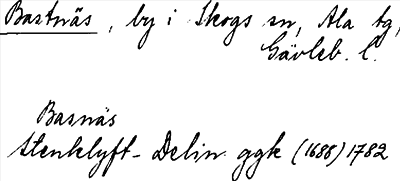 Bastnäs, by i Skogs sn, Ala tg,
Gävleb. l.
Basnäs
Stenklyft-Delin ggk (1688) 1782